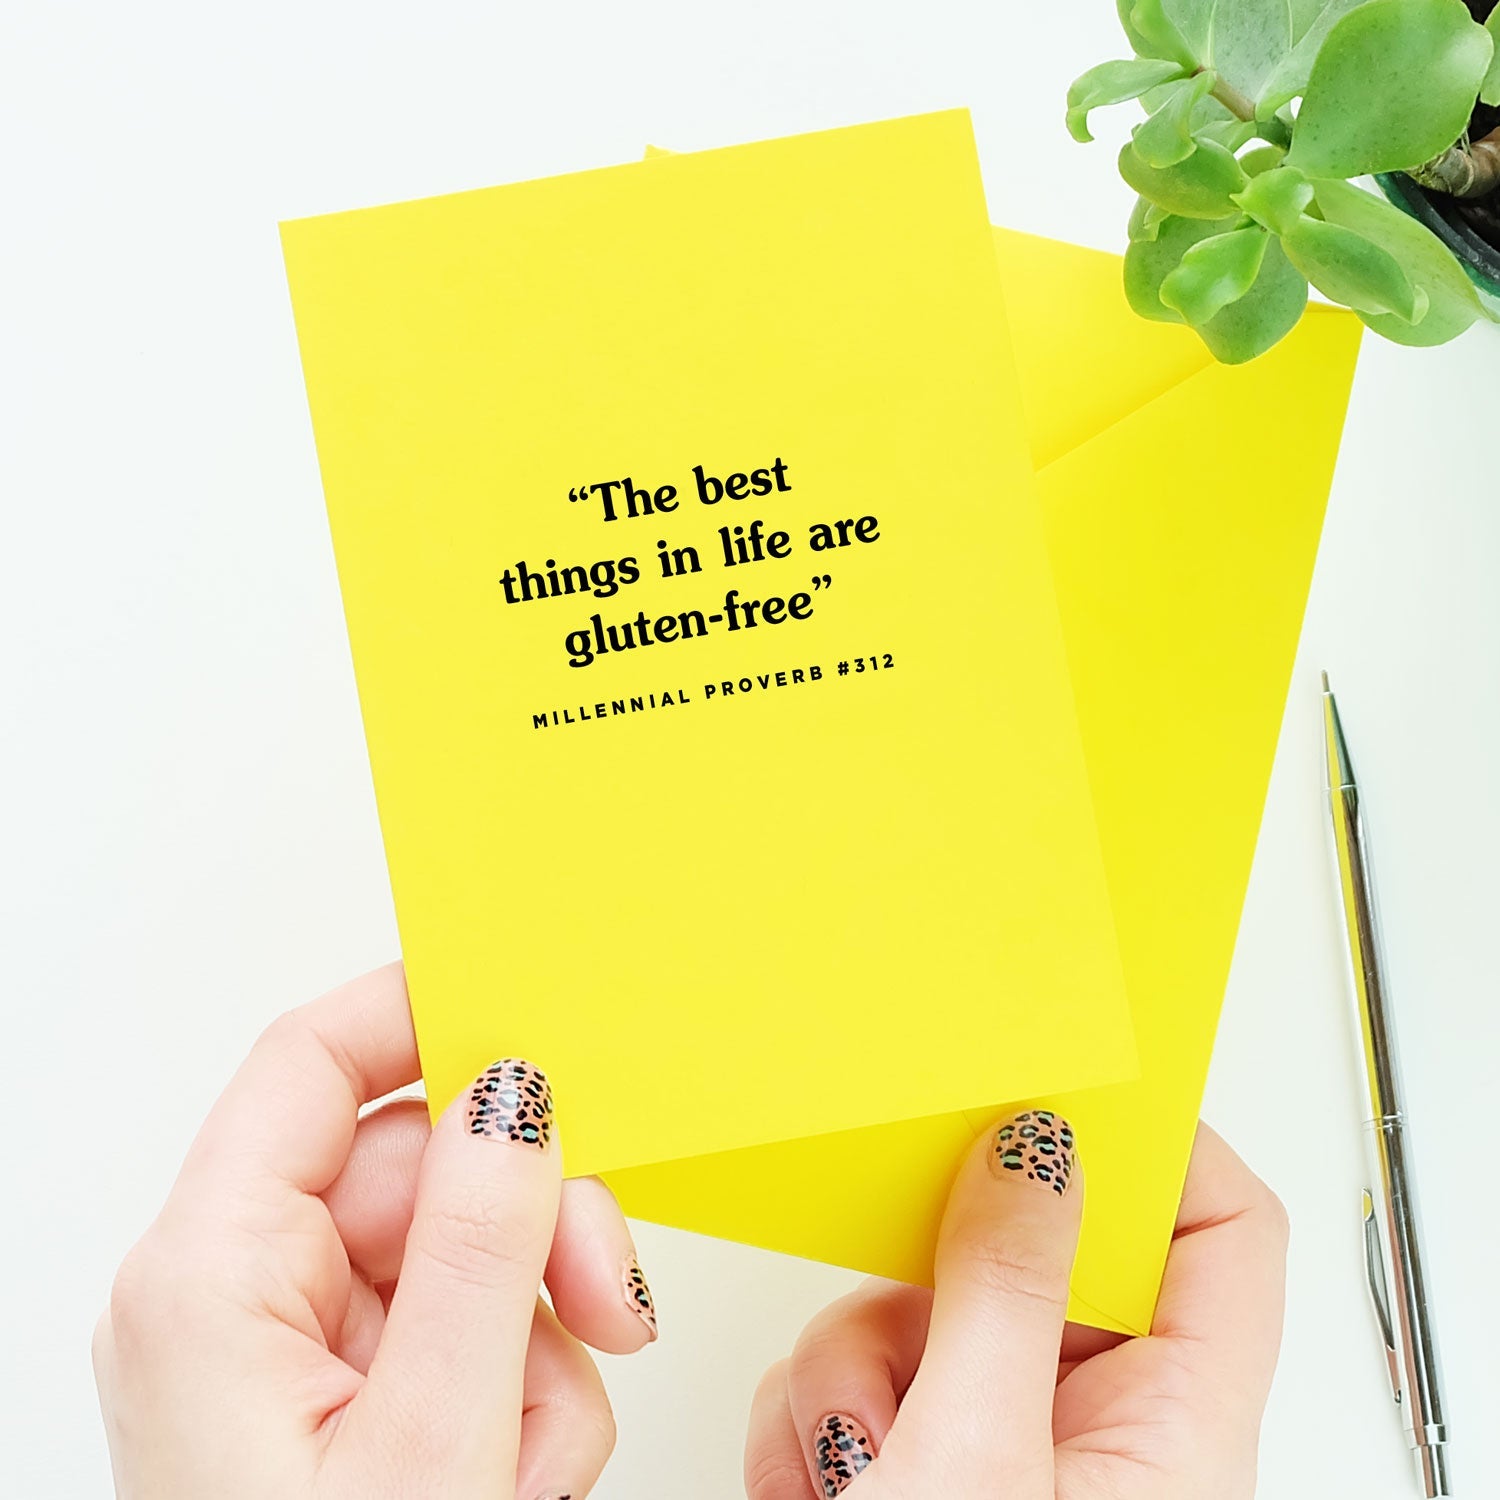 “The best
things in life are
gluten-free”
MILLENNIAL PROVERB #312